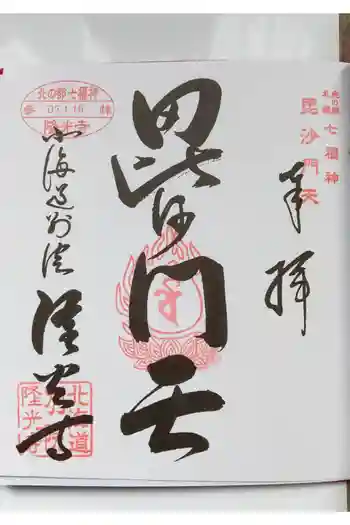 北の都
札幌
七福神
毘沙門天
奉拝
毘沙門天
北の都七福神
参拝
07.1.16
隆光寺
北海道別院
隆光寺
北海道
別院
隆光寺